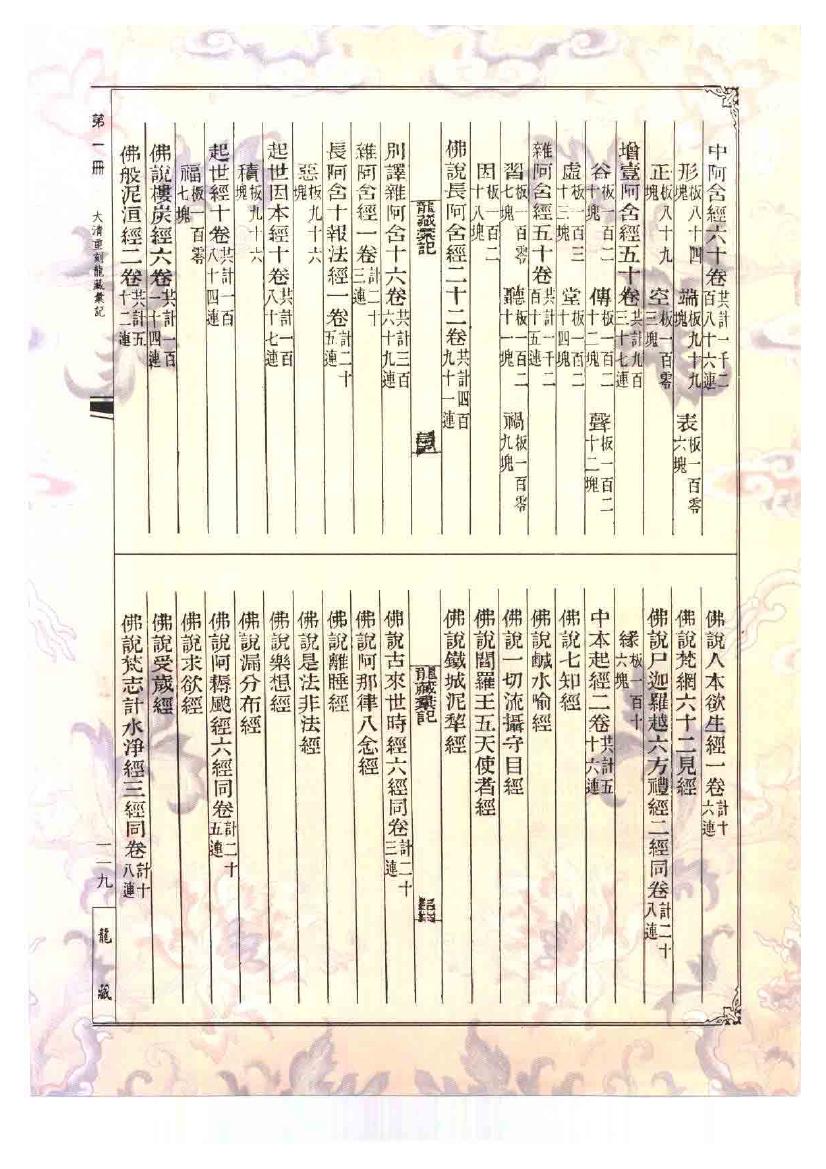 中阿含經六十卷共計一千二百八十六連
形板八十四塊 端板九十九塊 表板一百零六塊
正板八十九塊 空板一百零三塊
增壹阿含經五十卷共計九百三十七連
谷板一百二十塊 傳板一百二十二塊 聲板一百二十二塊
虛板一百三十三塊 堂板一百二十四塊
雜阿含經五十卷共計一千二百十五連
習板一百零七塊 聽板一百二十一塊 禍板一百零九塊
因板一百二十八塊
佛說長阿含經二十二卷共計四百九十一連
龍藏彙記
別譯雜阿含十六卷共計三百六十九連
雜阿含經一卷計二十三連
長阿含十報法經一卷計二十五連
惡板九十六塊
起世因本經十卷共計一百八十七連
積板九十六塊
起世經十卷共計一百八十四連
福板一百零七塊
佛說樓炭經六卷共計一百一十四連
佛般泥洹經二卷共計五十二連
佛說人本欲生經一卷計十六連
佛說梵網六十二見經
佛說尸迦羅越六方禮經二經同卷計二十八連
緣板一百十六塊
中本起經二卷共計五十六連
佛說七知經
佛說鹹水喻經
佛說一切流攝守目經
佛說閻羅王五天使者經
佛說鐵城泥犁經
龍藏彙記
佛說古來世時經六經同卷計二十三連
佛說阿那律八念經
佛說離睡經
佛說是法非法經
佛說樂想經
佛說漏分布經
佛說阿耨颰經六經同卷計二十五連
佛說求欲經
佛說受歲經
佛說梵志計水淨經三經同卷計十八連
第一冊
大清重刻龍藏彙記
一一九
龍藏